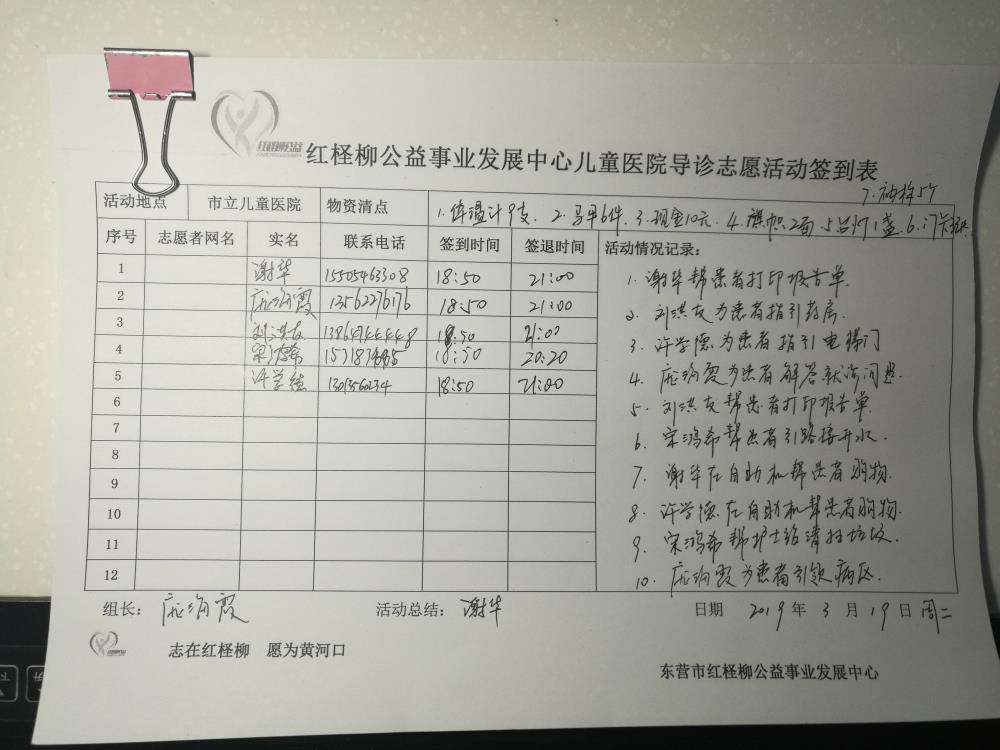 红柽柳公益
红柽柳公益事业发展中心儿童医院导诊志愿活动签到表
7.袖标5个
活动地点 市立儿童医院 物资清点 1.体温计9支. 2.马甲6件. 3.现金10元. 4.旗帜2面. 5.台灯1盏. 6.门卡
序号 志愿者网名 实名 联系电话 签到时间 签退时间 活动情况记录:
1 谢华 15505463308 18:50 21:00 1. 谢华帮患者打印报告单.
2 庞海霞 13562276176 18:50 21:00 2. 刘洪友为患者指引药房.
3 刘洪友 18:50 21:00 3. 许学德为患者指引电梯门
4 宋鸿希 18:50 20:20 4. 庞海霞为患者解答就诊问题.
5 许学德 18:50 21:00 5. 刘洪友帮患者打印报告单.
6 6. 宋鸿希帮患者引路接开水.
7 7. 谢华在自助机帮患者购物.
8 8. 许学德在自助机帮患者购物.
9 9. 宋鸿希帮护士站清扫垃圾.
10 10. 庞海霞为患者引领病区.
11
12
组长: 庞海霞 活动总结: 谢华 日期 2019年3月19日周二
志在红柽柳 愿为黄河口
东营市红柽柳公益事业发展中心